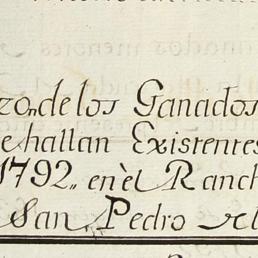 zon de los Ganados
e hallan Existentes
1792,, en èl Ranch
San Pedro